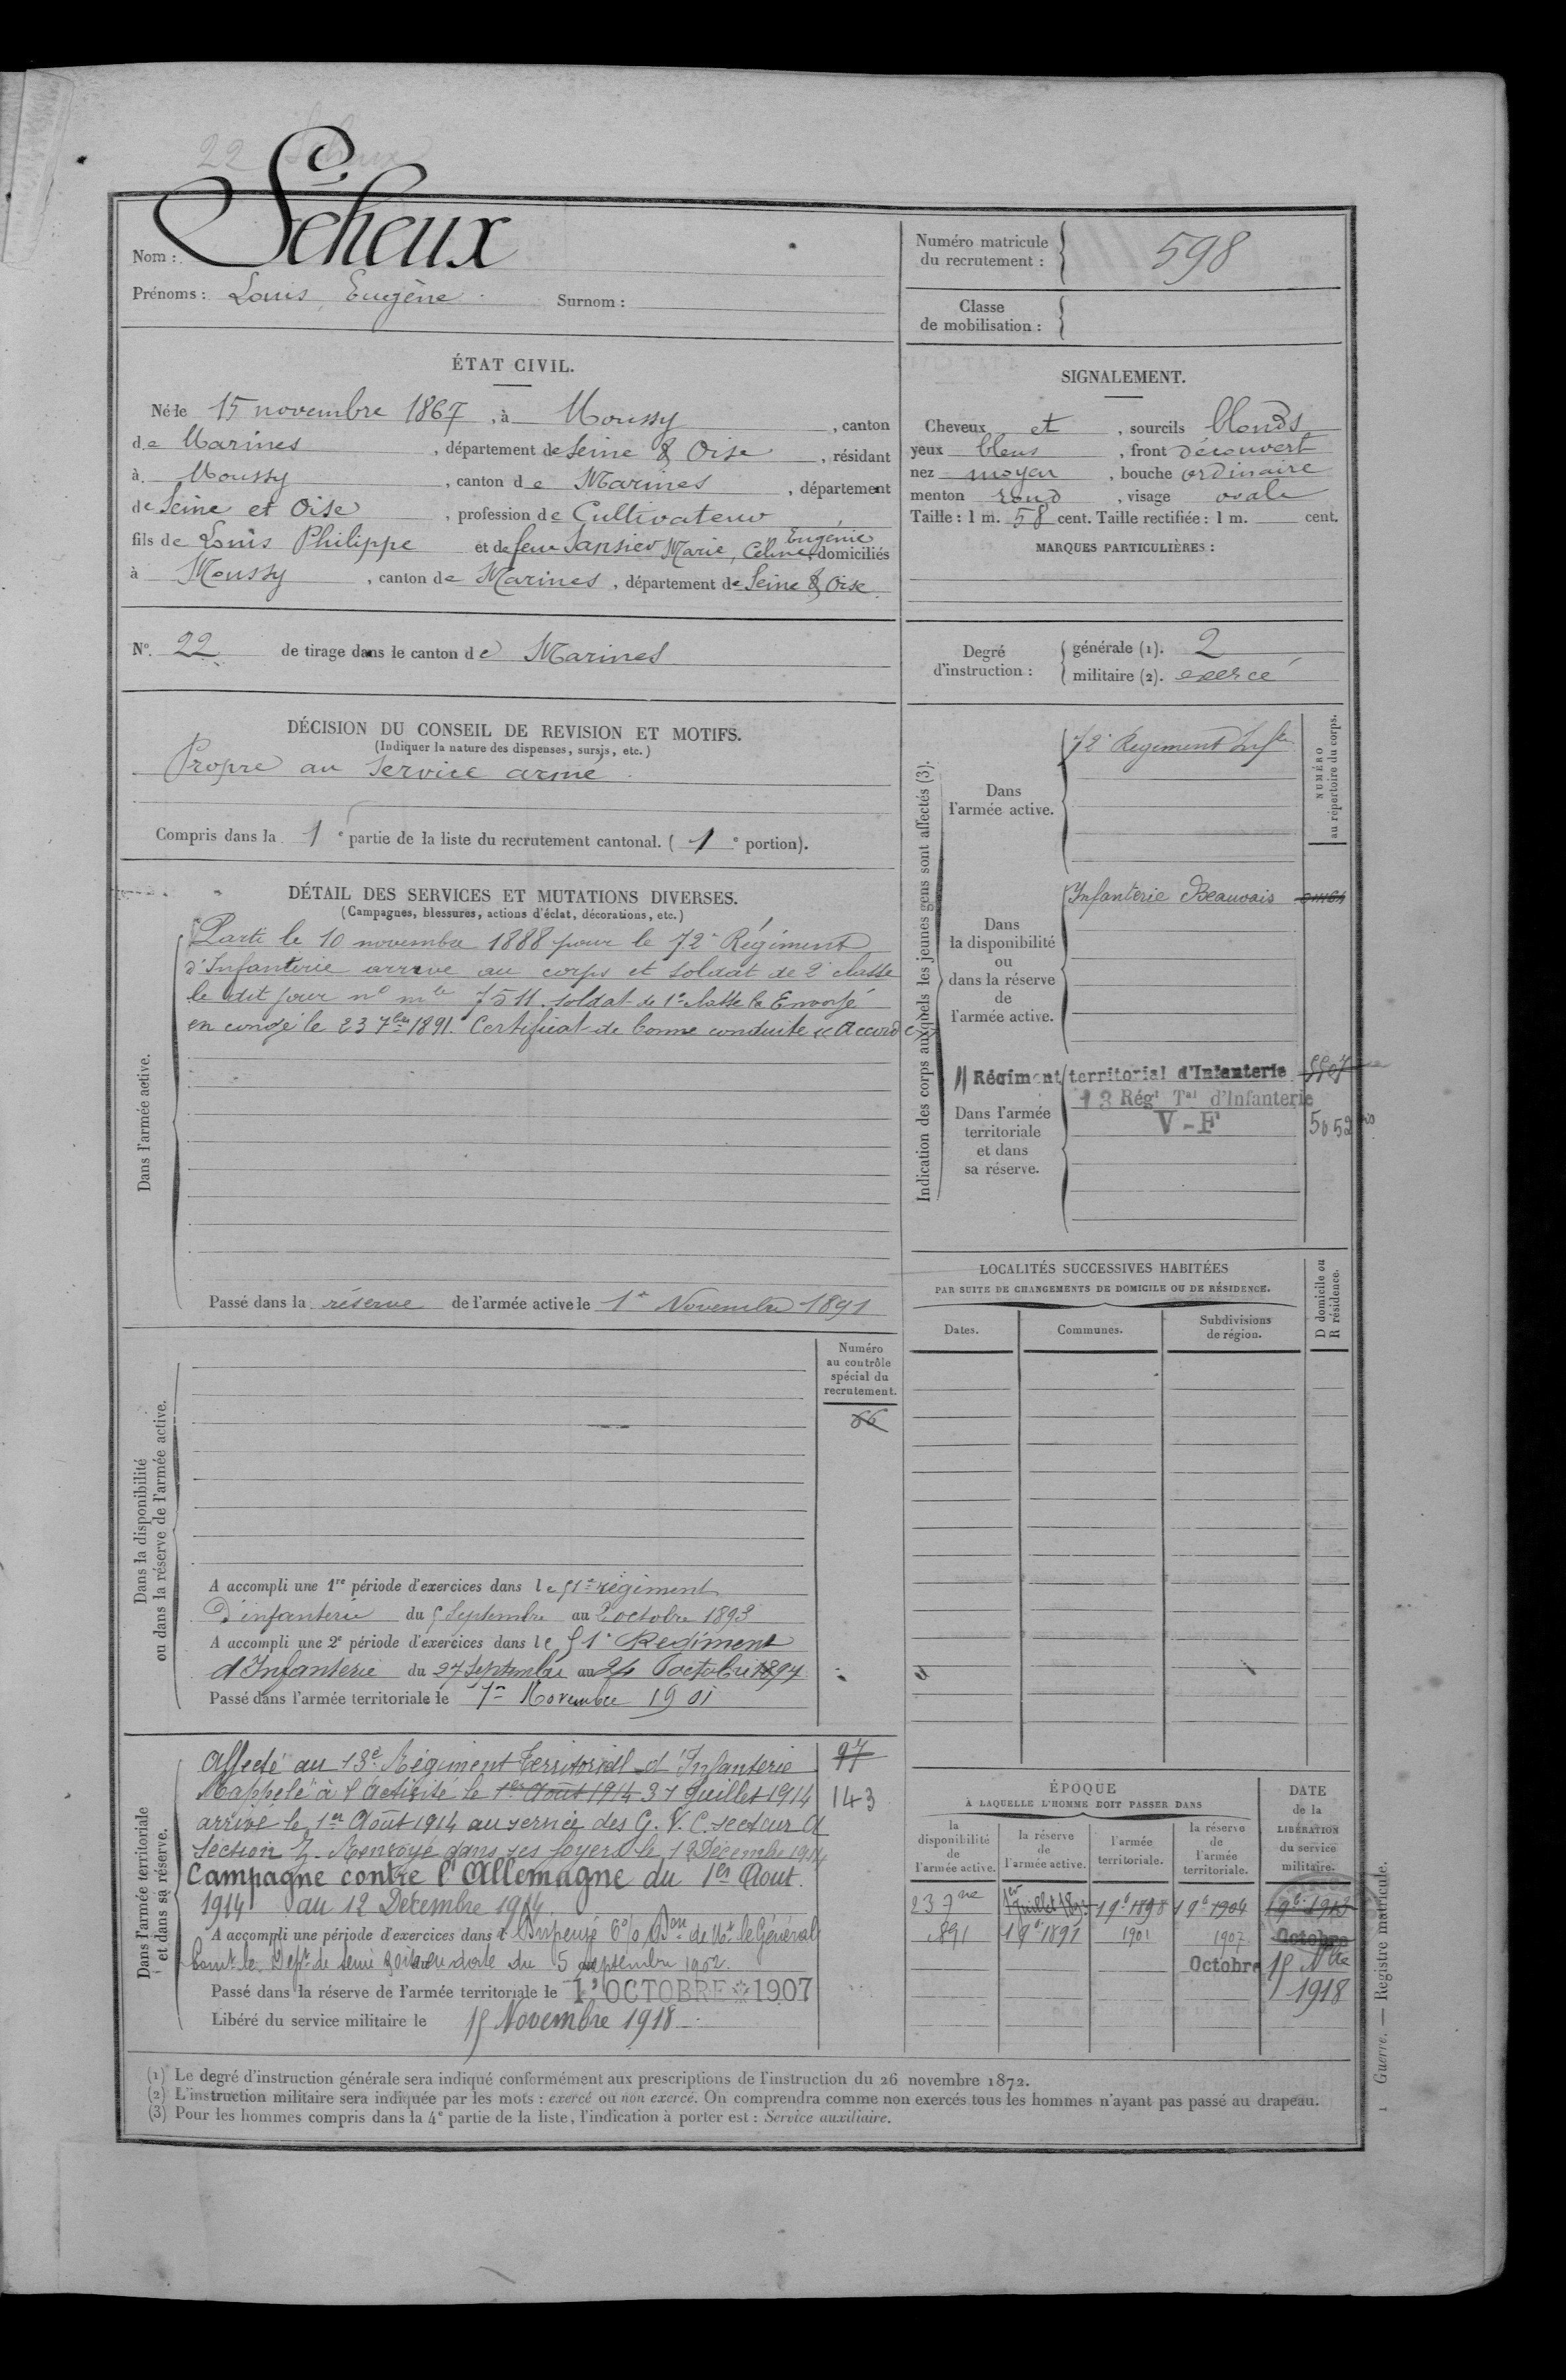 Nom : Scheux
Prénoms : Louis, Eugène. Surnom :
Numéro matricule du recrutement : 598
Classe de mobilisation :
ÉTAT CIVIL.
Né le 15 novembre 1867, à Moussy, canton
de Marines, département de Seine & Oise, résidant
à Moussy, canton de Marines, département
de Seine et Oise, profession de Cultivateur
fils de Louis Philippe et de feue Marie, Céline, Eugénie domiciliés
à Moussy, canton de Marines, département de Seine & Oise.
SIGNALEMENT.
Cheveux et, sourcils blonds
yeux bleus, front découvert
nez moyen, bouche ordinaire
menton rond, visage ovale
Taille : 1 m. 58 cent. Taille rectifiée : 1 m. cent.
MARQUES PARTICULIÈRES :
N° 22 de tirage dans le canton de Marines
Degré d'instruction :
générale (1). 2
militaire (2). exercé
DÉCISION DU CONSEIL DE REVISION ET MOTIFS.
(Indiquer la nature des dispenses, sursis, etc.)
Propre au service armé.
Compris dans la 1e partie de la liste du recrutement cantonal. (1e portion).
DÉTAIL DES SERVICES ET MUTATIONS DIVERSES.
(Campagnes, blessures, actions d'éclat, décorations, etc.)
Dans l'armée active.
Parti le 10 novembre 1888 pour le 72e Régiment
d'Infanterie arrivé au corps et soldat de 2e classe
le dit jour n° mle 7511. soldat de 1e classe le Envoyé
en congé le 23 7bre 1891. Certificat de bonne conduite « Accordé »
Passé dans la réserve de l'armée active le 1er Novembre 1891
Indication des corps auxquels les jeunes gens sont affectés (3).
NUMÉRO au répertoire du corps.
Dans l'armée active.
72e Régiment Infie
Dans la disponibilité ou dans la réserve de l'armée active.
Infanterie Beauvais
11 Régiment territorial d'Infanterie
13 Régt Tal d'Infanterie
V-F
5052
Dans l'armée territoriale et dans sa réserve.
LOCALITÉS SUCCESSIVES HABITÉES
PAR SUITE DE CHANGEMENTS DE DOMICILE OU DE RÉSIDENCE.
Dates. Communes. Subdivisions de région. D domicile ou R résidence.
Dans la disponibilité ou dans la réserve de l'armée active.
Numéro au contrôle spécial du recrutement.
66
A accompli une 1re période d'exercices dans le 51e régiment
d'infanterie du 5 Septembre au 2 octobre 1893
A accompli une 2e période d'exercices dans le 51e Régiment
d'Infanterie du 27 Septembre au 24 octobre 1897
Passé dans l'armée territoriale le 1er Novembre 1901
Dans l'armée territoriale et dans sa réserve.
Affecté au 13e Régiment Territorial d'Infanterie 97
Rappelé à l'activité le 1er Août 1914 31 Juillet 1914 143
arrivé le 1er Août 1914 au service des G. V. C. secteur A
Section Z. Renvoyé dans ses foyers le 12 Décembre 1914
Campagne contre l'Allemagne du 1er Aout
1914 au 12 Décembre 1914.
A accompli une période d'exercices dans le Général
5 septembre 1902.
Passé dans la réserve de l'armée territoriale le 1er OCTOBRE 1907
Libéré du service militaire le 15 Novembre 1918
ÉPOQUE
À LAQUELLE L'HOMME DOIT PASSER DANS
la disponibilité de l'armée active.
la réserve de l'armée active.
l'armée territoriale.
la réserve de l'armée territoriale.
DATE de la LIBÉRATION du service militaire.
23 7bre 1er Juillet 1895 1 9b 1898 1 9b 1904 1 9b 1913
1891 1 9b 1891 1901 1907 Octobre
Octobre 15 Nbre
1918
(1) Le degré d'instruction générale sera indiqué conformément aux prescriptions de l'instruction du 26 novembre 1872.
(2) L'instruction militaire sera indiquée par les mots : exercé ou non exercé. On comprendra comme non exercés tous les hommes n'ayant pas passé au drapeau.
(3) Pour les hommes compris dans la 4e partie de la liste, l'indication à porter est : Service auxiliaire.
Guerre. — Registre matricule.